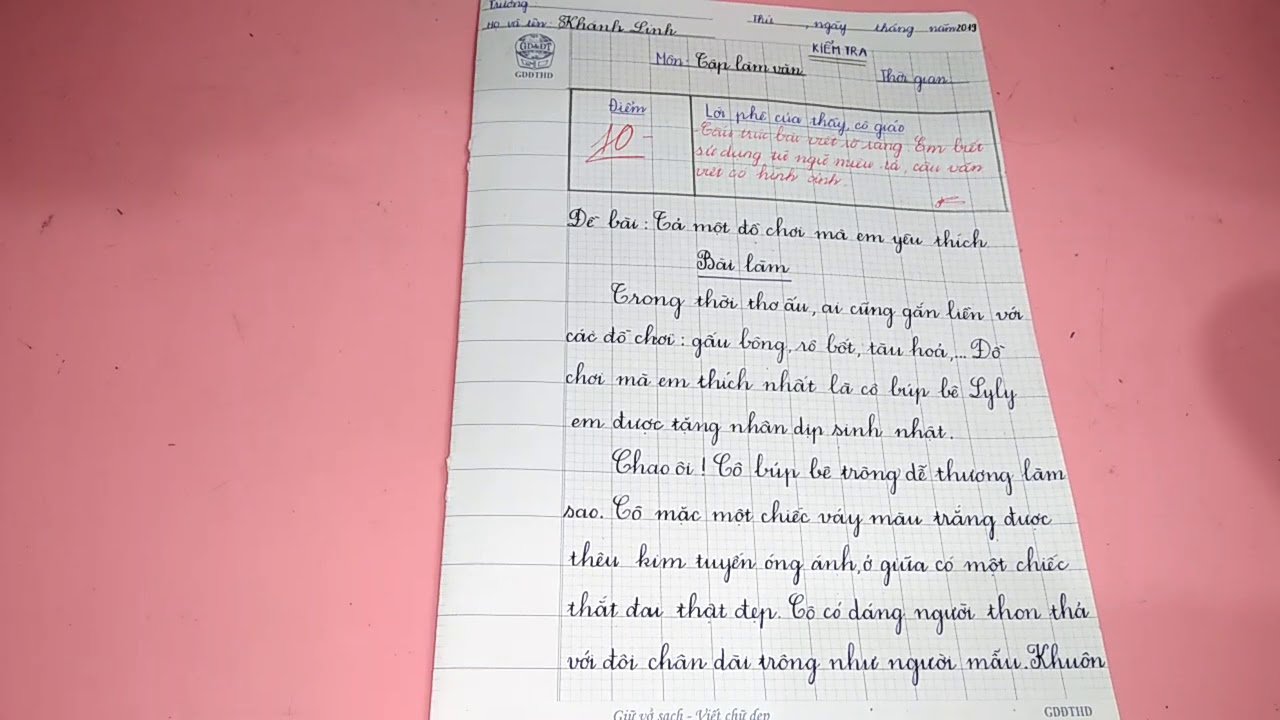 Trường:
Họ và tên: Khánh Linh
Thứ , ngày tháng năm 2019
GD&ĐT
GDĐTHD
KIỂM TRA
Môn: Tập làm văn
Thời gian
Điểm
10
Lời phê của thầy, cô giáo
Cấu trúc bài viết rõ ràng Em biết
sử dụng từ ngữ miêu tả, câu văn
viết có hình ảnh.
Đề bài: Tả một đồ chơi mà em yêu thích
Bài làm
Trong thời thơ ấu, ai cũng gắn liền với
các đồ chơi: gấu bông, rô bốt, tàu hoả,... Đồ
chơi mà em thích nhất là cô búp bê Lyly
em được tặng nhân dịp sinh nhật.
Chao ôi! Cô búp bê trông dễ thương làm
sao. Cô mặc một chiếc váy màu trắng được
thêu kim tuyến óng ánh, ở giữa có một chiếc
thắt đai thật đẹp. Cô có dáng người thon thả
với đôi chân dài trông như người mẫu. Khuôn
Giữ vở sạch - Viết chữ đẹp
GDĐTHD